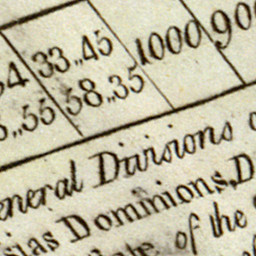 33,,45 1000 90
58,,35
,,55
eneral Divisions
ias Dominions, D
of the